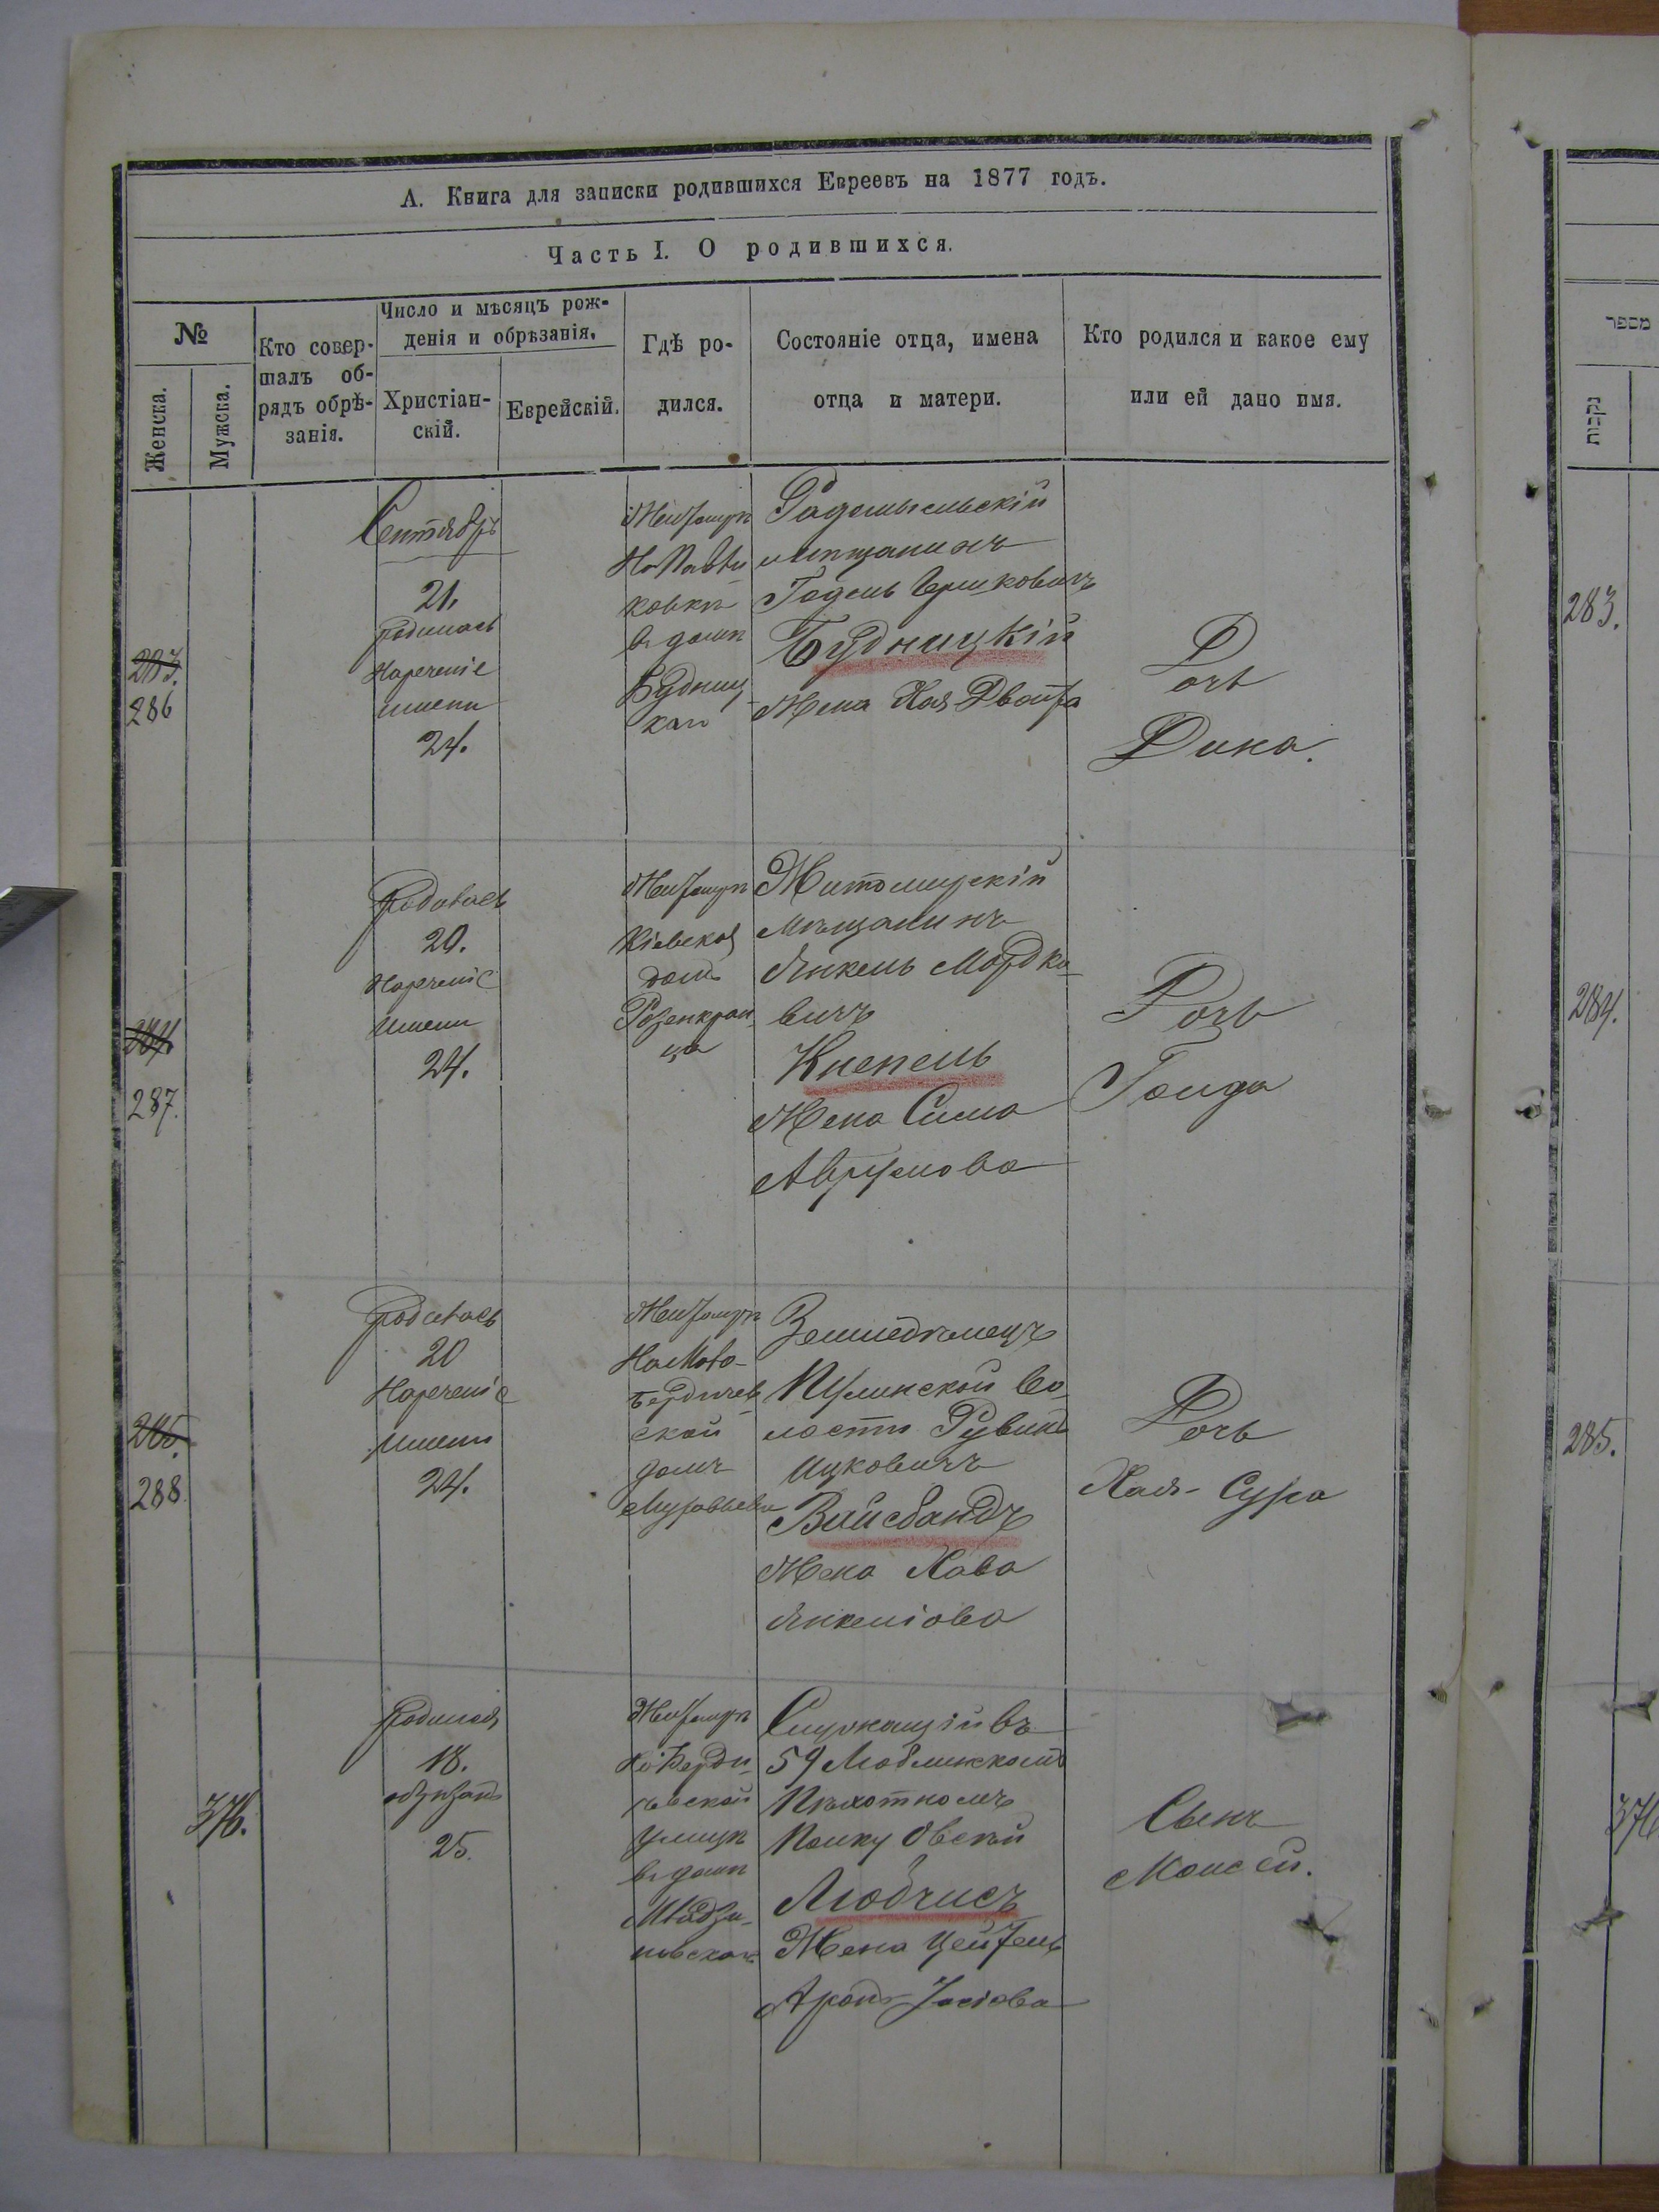 А. Книга для записки родившихся Евреевъ на 1877 годъ.
Часть I. О родившихся.
№
Женска.
Мужска.
Кто совер-
шалъ об-
рядъ обрѣ-
занія.
Число и мѣсяцъ рож-
денія и обрѣзанія.
Христіан-
скій.
Еврейскій.
Гдѣ ро-
дился.
Состояніе отца, имена
отца и матери.
Кто родился и какое ему
или ей дано имя.
283.
286
Сентябрь
21.
родилась
Нареченіе
имени
24.
Житомирѣ
ковкѣ
в домѣ
Будниц-
каго
Радомысльскій
мѣщанинъ
Годель Гершковичъ
Будницкій
Жена Хая Двойра
Дочь
Дина.
284.
287.
родилась
20.
Нареченіе
имени
24.
Житомирѣ
Кіевская
домъ
Розенкран-
ца
Житомирскій
мѣщанинъ
Янкель Мордко-
вичъ
Кнепель
Жена Сима
Аврумова
Дочь
Голда
285.
288.
родилась
20
Нареченіе
имени
24.
Житомирѣ
На Ново-
Бердичев-
ской
домъ
Муравьева
Земледѣлецъ
Пулинской Во-
лости Рувинъ
Ицковичъ
Вайсбандъ
Жена Хава
Янкеліова
Дочь
Хая-Сура
376.
родился
18.
обрѣзанъ
25.
Житомирѣ
По Берди-
чевской
улицѣ
в домѣ
Служащій въ
59 Люблинскомъ
Пѣхотномъ
Полку Овсѣй
Любчисъ
Жена Цейтель
Аронъ-Іосіова
Сынъ
Моисей.
מספר
נקבות
283.
284.
285.
376